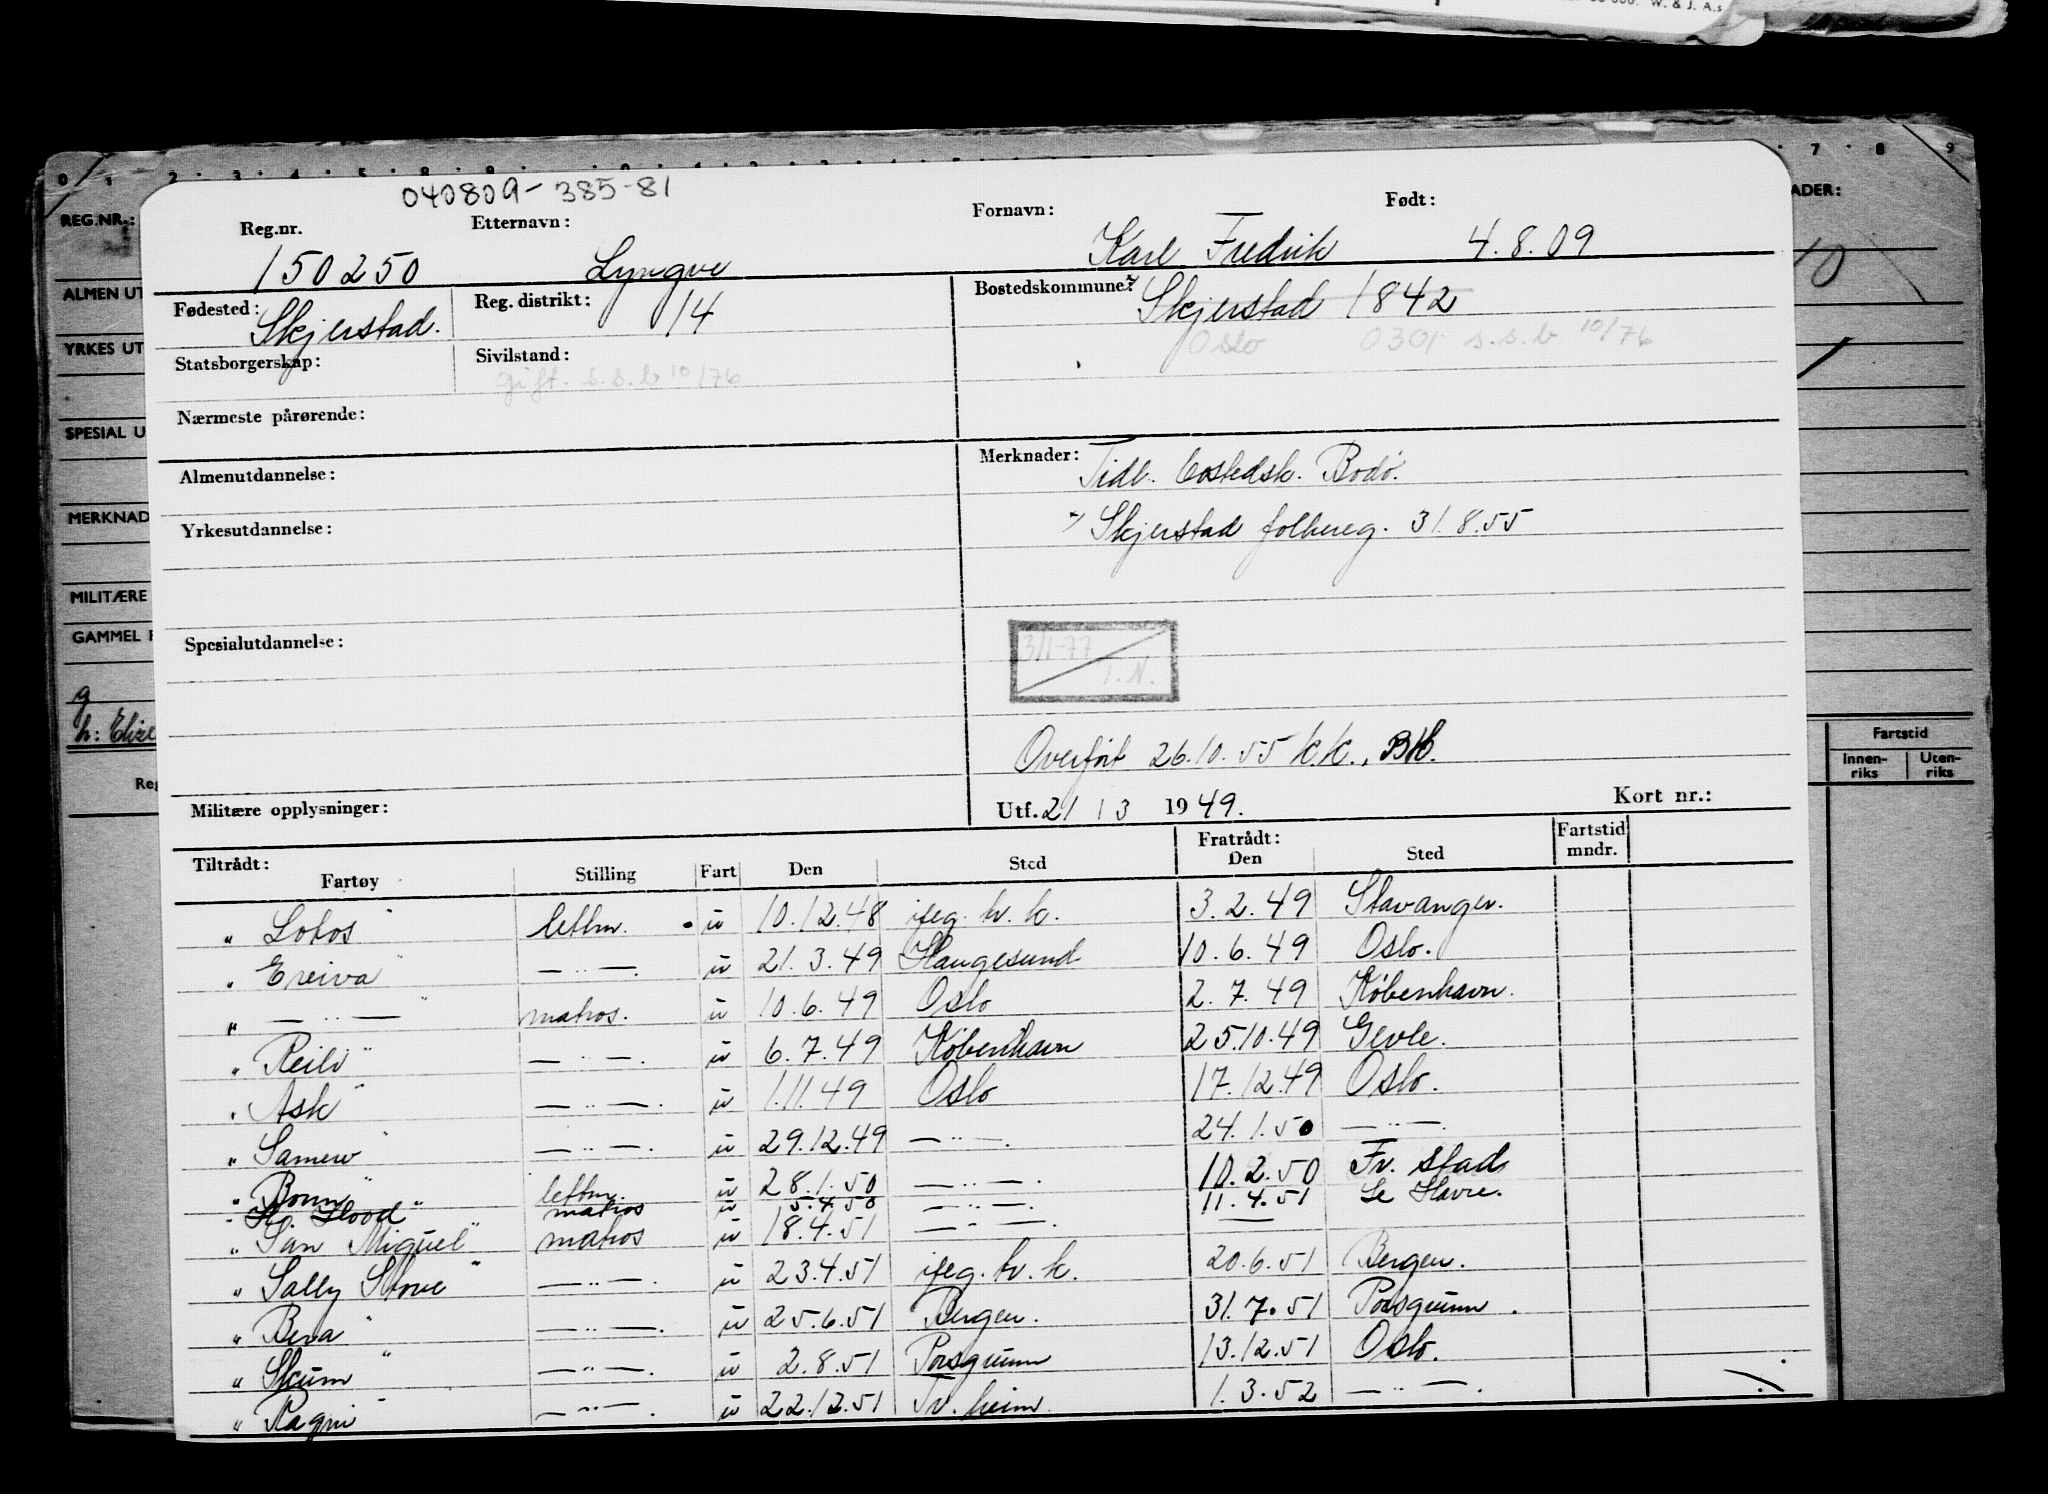 W. & J. A.s
0 1 2 3 4 5 8 9 7 8 9
REG.NR.:
ADER:
ALMEN UT
YRKES UT
SPESIAL U
MERKNAD
MILITÆRE
GAMMEL
g
h: Elize
Reg
Fartstid
Innen-riks Uten-riks
040809-385-81
Reg.nr. Etternavn: Fornavn: Født:
150250 Lyngve Karl Fredrik 4.8.09
Fødested: Skjerstad. Reg. distrikt: 14 Bostedskommune: x Skjerstad 1842
Oslo 0301 s.s.b 10/76
Statsborgerskap: Sivilstand: gift. s.s.b 10/76
Nærmeste pårørende:
Almenutdannelse: Merknader: Tidl. bostedsk. Bodø.
Yrkesutdannelse: x) Skjerstad folkereg. 31.8.55
Spesialutdannelse: 3/1-77 T.N.
Overført 26.10.55 k.k., BH.
Militære opplysninger: Utf. 21/3 1949. Kort nr.:
Tiltrådt: Fratrådt: Fartstid mndr.
Fartøy Stilling Fart Den Sted Den Sted
" Lotos " lettm. u 10.12.48 iflg. hv. k. 3.2.49 Stavanger.
" Ereiva " — " — u 21.3.49 Haugesund 10.6.49 Oslo.
" — " — " matros. u 10.6.49 Oslo 2.7.49 København.
" Reili " — " — u 6.7.49 København 25.10.49 Gevle.
" Ask " — " — u 1.11.49 Oslo 17.12.49 Oslo.
" Samuw " — " — u 29.12.49 — " — 24.1.50 — " —
" Bonn " lettm. u 28.1.50 — " — 10.2.50 Fr. stad
" H. Hood " matros u 5.4.50 — " — 11.4.51 Le Havre.
" San Miguel " matros u 18.4.51 — " — —
" Sally Stove " — " — u 23.4.51 iflg. hv. k. 20.6.51 Bergen.
" Beva " — " — u 25.6.51 Bergen. 31.7.51 Porsgrunn.
" Skum " — " — u 2.8.51 Porsgrunn 13.12.51 Oslo.
" Ragni " — " — u 22.12.51 Tr. heim 1.3.52 — " —